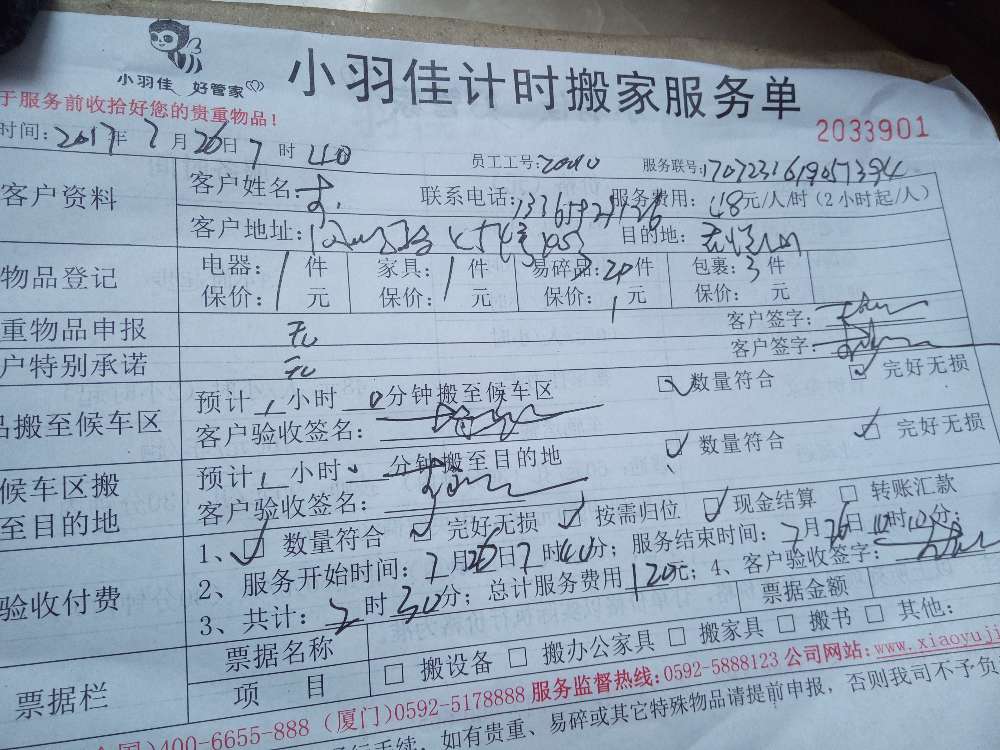 小羽佳 好管家
小羽佳计时搬家服务单
于服务前收拾好您的贵重物品！
2033901
时间：2017年7月26日7时40
员工工号：20010 服务联号：
客户资料
客户姓名： 联系电话： 服务费用：48元/人/时（2小时起/人）
客户地址： 目的地：
物品登记
电器：1件 家具：1件 易碎品：2件 包裹：3件
保价：元 保价：元 保价：1元 保价：元
重物品申报 无 客户签字：
户特别承诺 无 客户签字：
品搬至候车区
预计1小时0分钟搬至候车区 数量符合 完好无损
客户验收签名：
候车区搬至目的地
预计1小时 分钟搬至目的地 数量符合 完好无损
客户验收签名：
验收付费
1、 数量符合 完好无损 按需归位 现金结算 转账汇款
2、服务开始时间：7月26日7时40分；服务结束时间：7月26日10时10分；
3、共计：2时30分；总计服务费用120元；4、客户验收签字：
票据栏
票据名称 票据金额
项目 搬设备 搬办公家具 搬家具 搬书 其他：
国)400-6655-888（厦门)0592-5178888 服务监督热线：0592-5888123 公司网站：www.xiaoyuji
行手续，如有贵重、易碎或其它特殊物品请提前申报，否则我司不予负